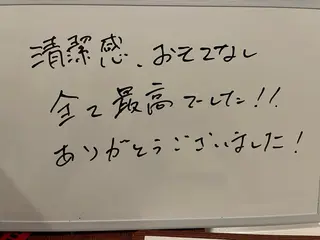 清潔感、おもてなし
全て最高でした!!
ありがとうございました!